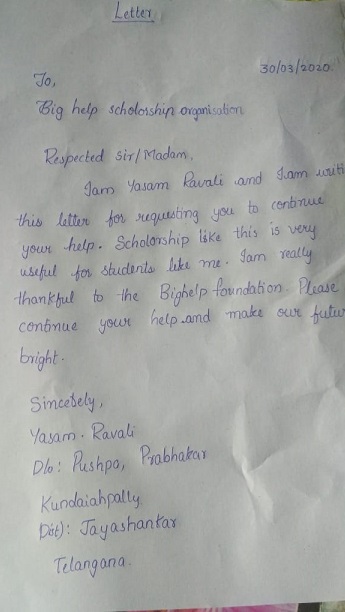 Letter
30/03/2020.
To,
Big help scholorship organisation
Respected Sir/Madam,
Iam Yasam Ravali and Iam writi
this letter for requesting you to continue
your help. Scholorship like this is very
useful for students like me. Iam really
thankful to the Bighelp foundation. Please
continue your help and make our futur
bright.
Sincerely,
Yasam. Ravali
D/o: Pushpa, Prabhakar
Kundaiahpally
Dist): Jayashankar
Telangana.